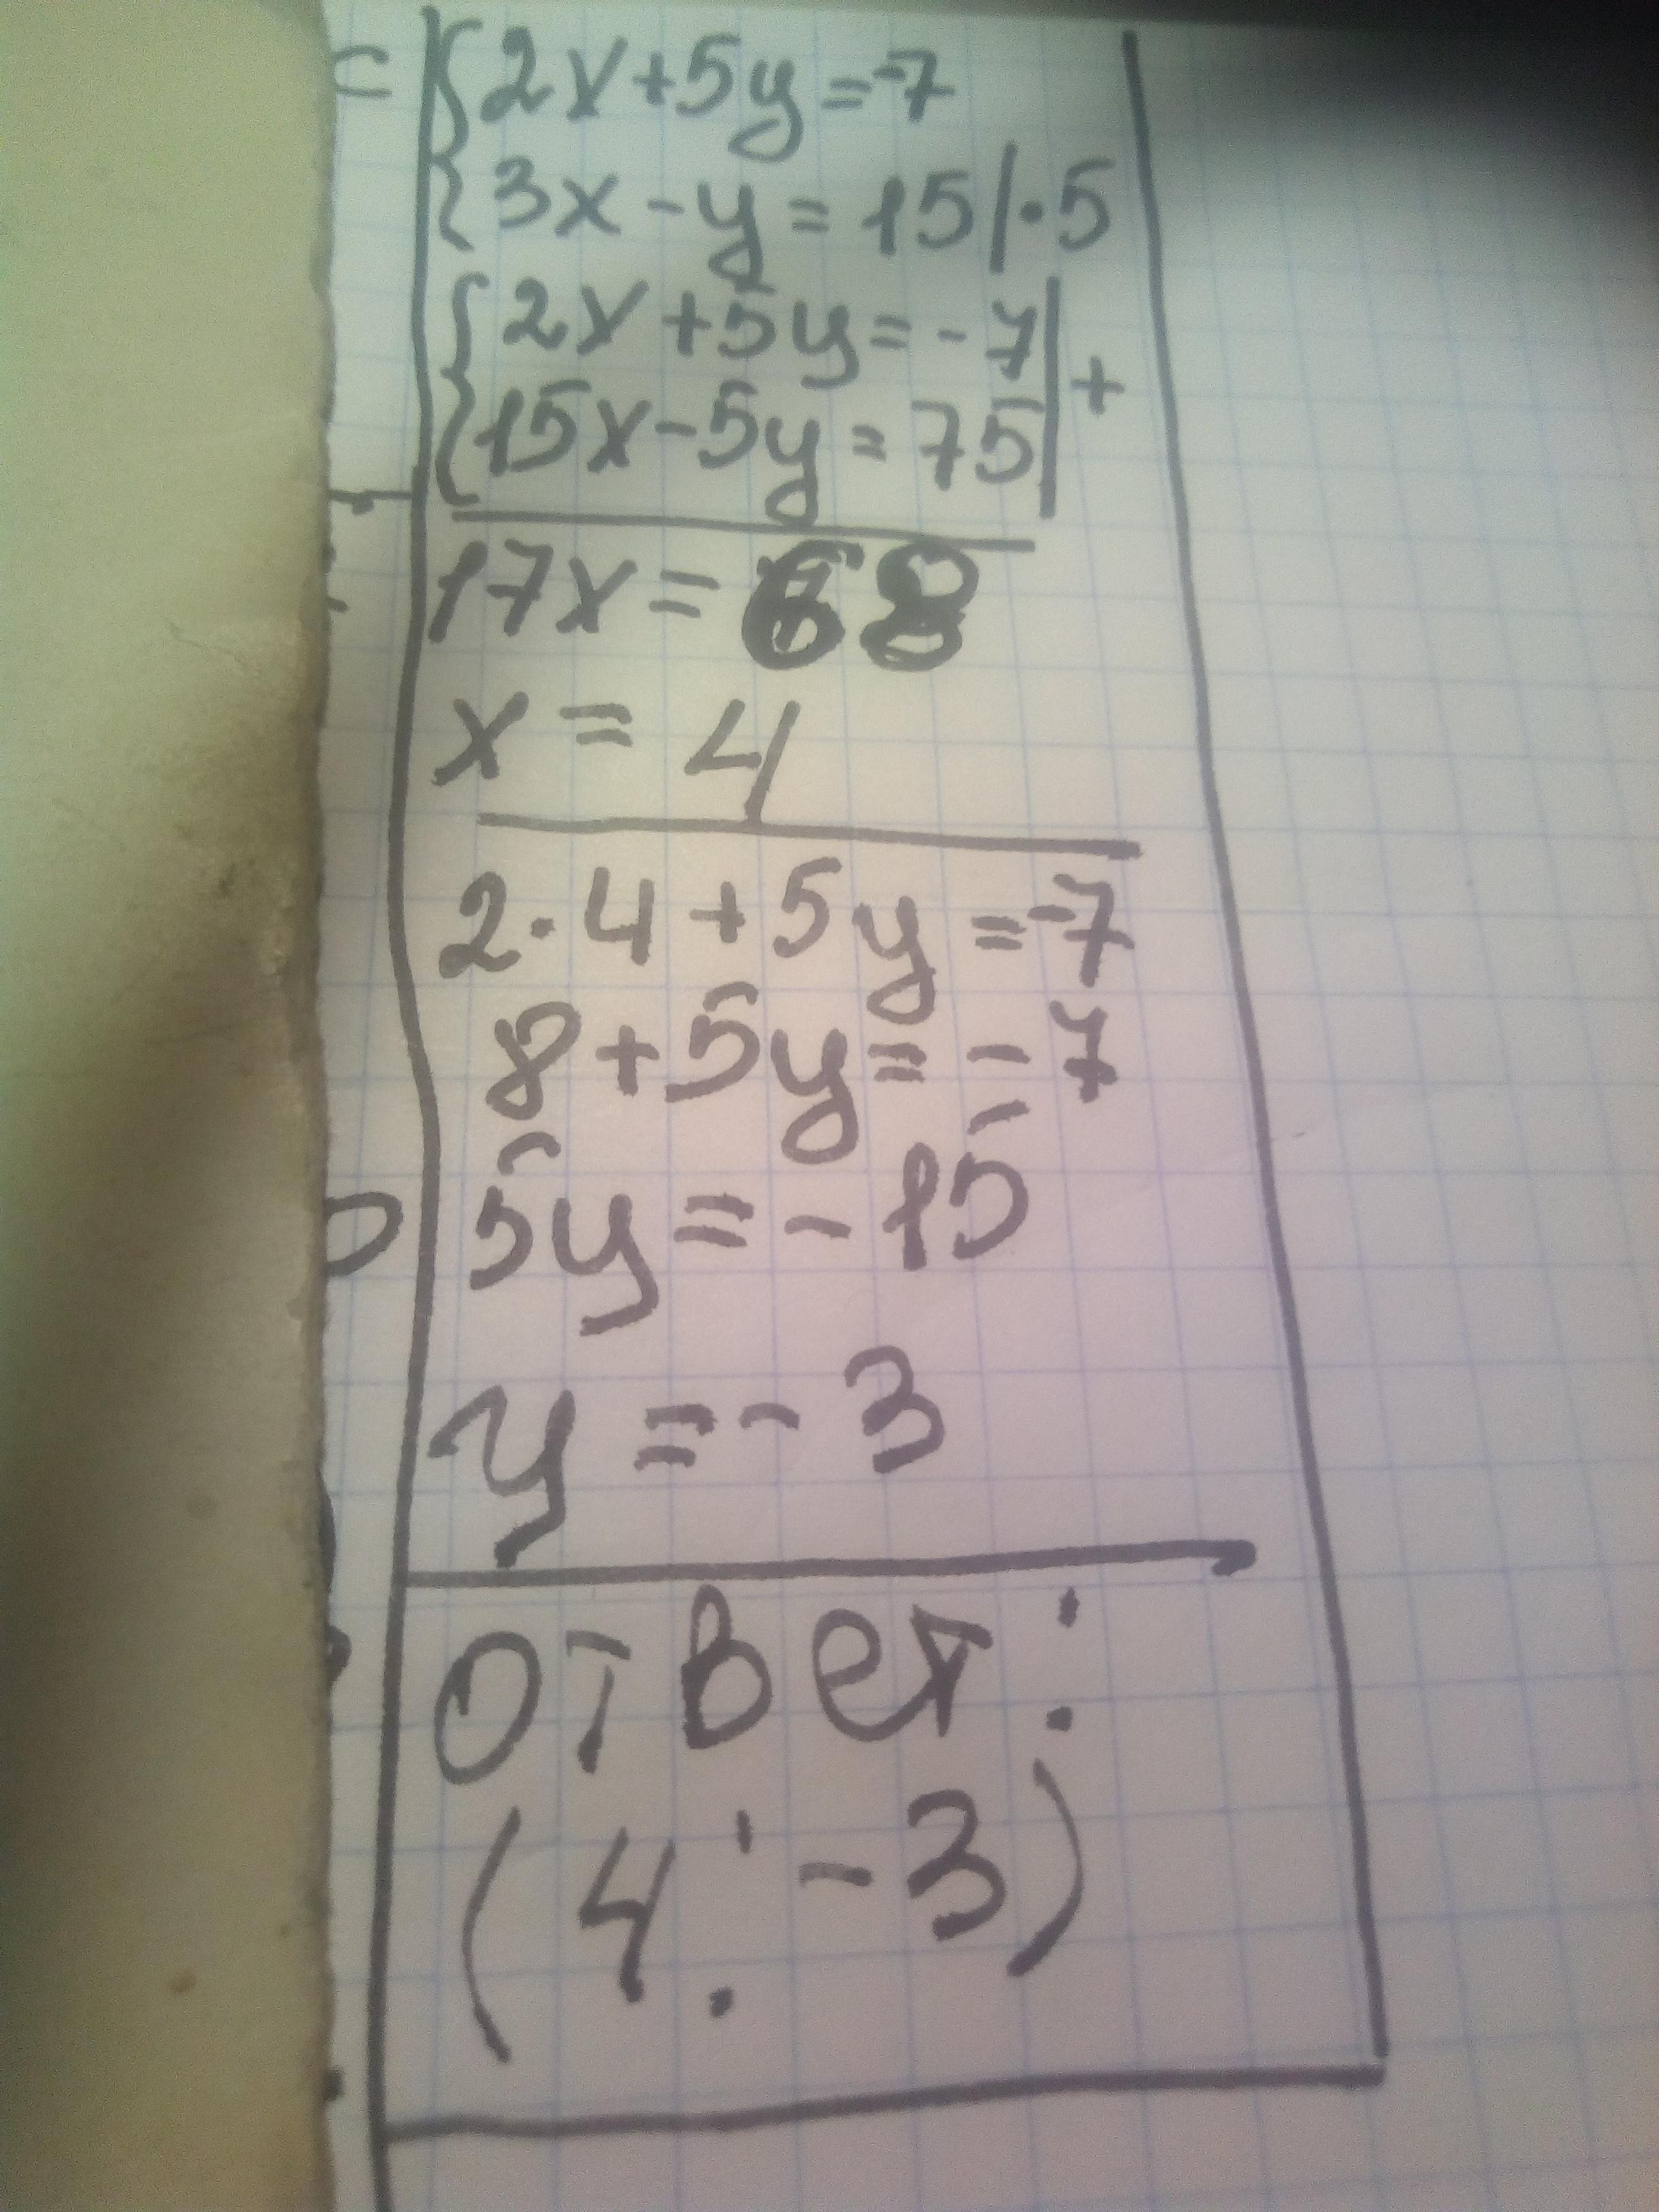 {2x+5y=-7
{3x-y=15|·5
{2x+5y=-7|
{15x-5y=75|+
17x=68
x=4
2·4+5y=-7
8+5y=-7
5y=-15
y=-3
Ответ:
(4:-3)